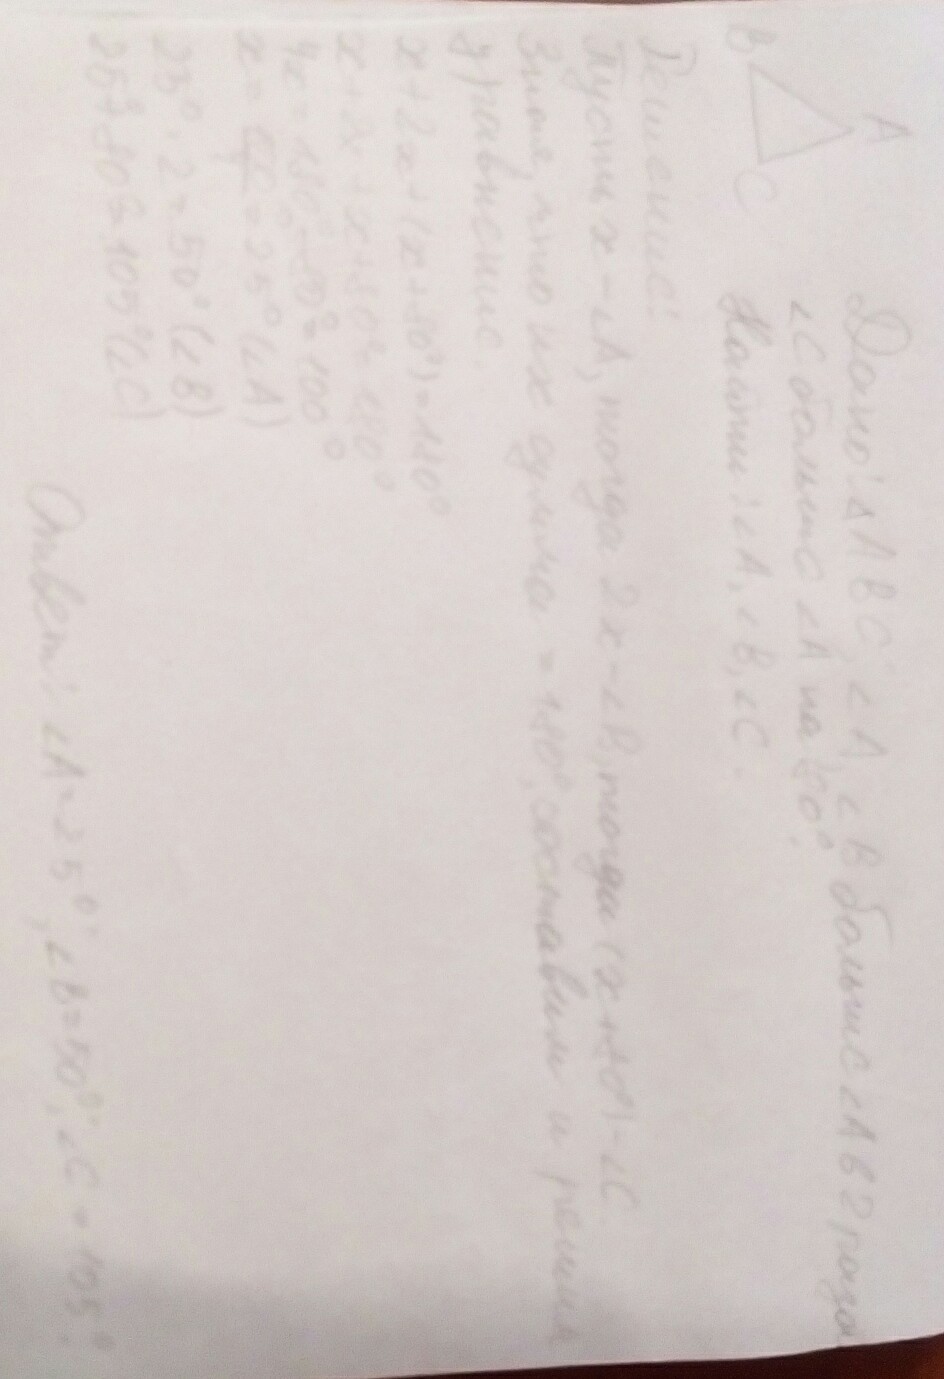 A
B
C
Дано: △ABC; ∠A, ∠B больше ∠A в 2 раза
∠C больше ∠A на 80°.
Найти: ∠A, ∠B, ∠C.
Решение:
Пусть x - ∠A, тогда 2x - ∠B, тогда (x+80°) - ∠C.
Зная, что их сумма = 180°, составим и решим
уравнение.
x+2x+(x+80°)=180°
x+2x+x+80°=180°
4x=180°-80°=100°
x= =25° (∠A)
25°·2=50° (∠B)
25°+80°=105° (∠C)
Ответ: ∠A=25°; ∠B=50°; ∠C=105°.